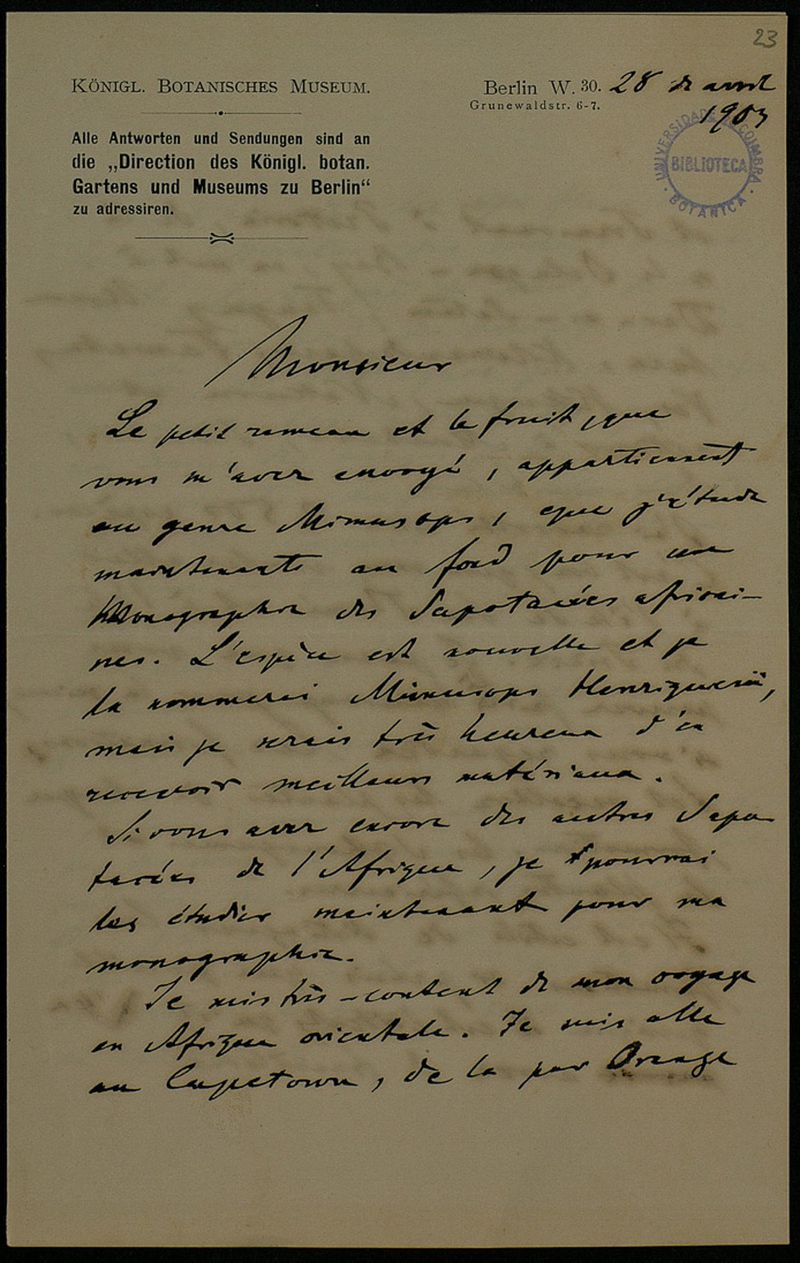 23
KÖNIGL. BOTANISCHES MUSEUM.
Berlin W. 30. 28 de avril
Grunewaldstr. 6-7.
1903
Alle Antworten und Sendungen sind an
die „Direction des Königl. botan.
Gartens und Museums zu Berlin“
zu adressiren.
UNIVERSIDADE COIMBRA
BIBLIOTECA
BOTANICA
Monsieur
Le petit rameau et le fruit, que
vous m'avez envoyé, appartiennent
au genre Mimusops, que j'étude
maintenant au fond pour une
Monographie des Sapotacées africai-
nes. L'espèce est nouvelle et je
la nommerai Mimusops Henriquesii,
mais je serais très heureux d'en
recevoir meilleurs matériaux.
Si vous avez encore des autres Sapo
tacées de l'Afrique, je pourrai
les étudier maintenant pour ma
monographie.
Je suis très-content de mon voyage
en Afrique orientale. Je suis allé
au Capetown, de la par Orange